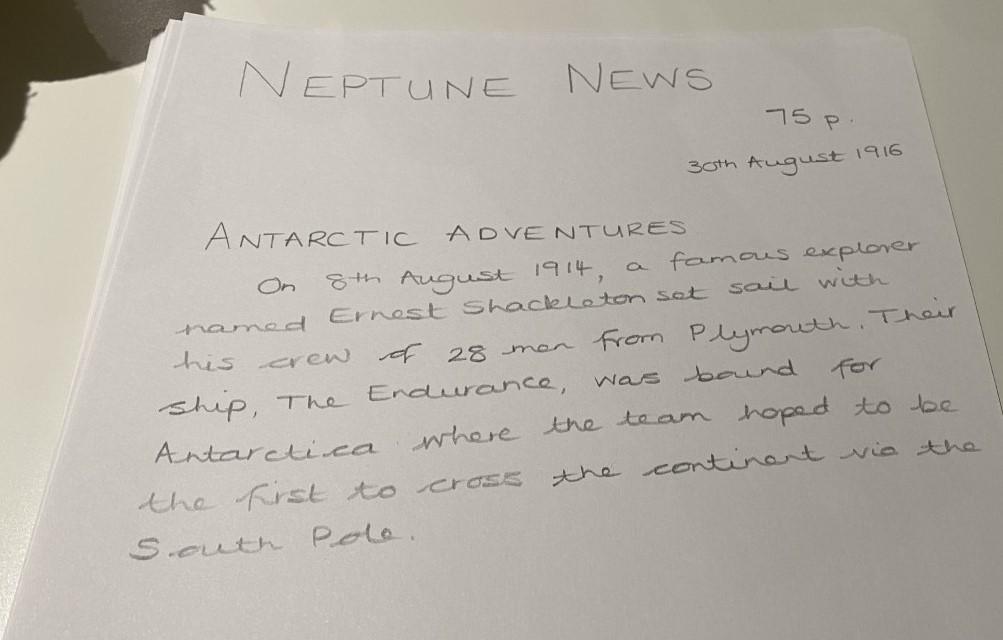 NEPTUNE NEWS
75 p.
30th August 1916
ANTARCTIC ADVENTURES
On 8th August 1914, a famous explorer
named Ernest Shackleton set sail with
his crew of 28 men from Plymouth. Their
ship, The Endurance, was bound for
Antarctica where the team hoped to be
the first to cross the continent via the
South Pole.